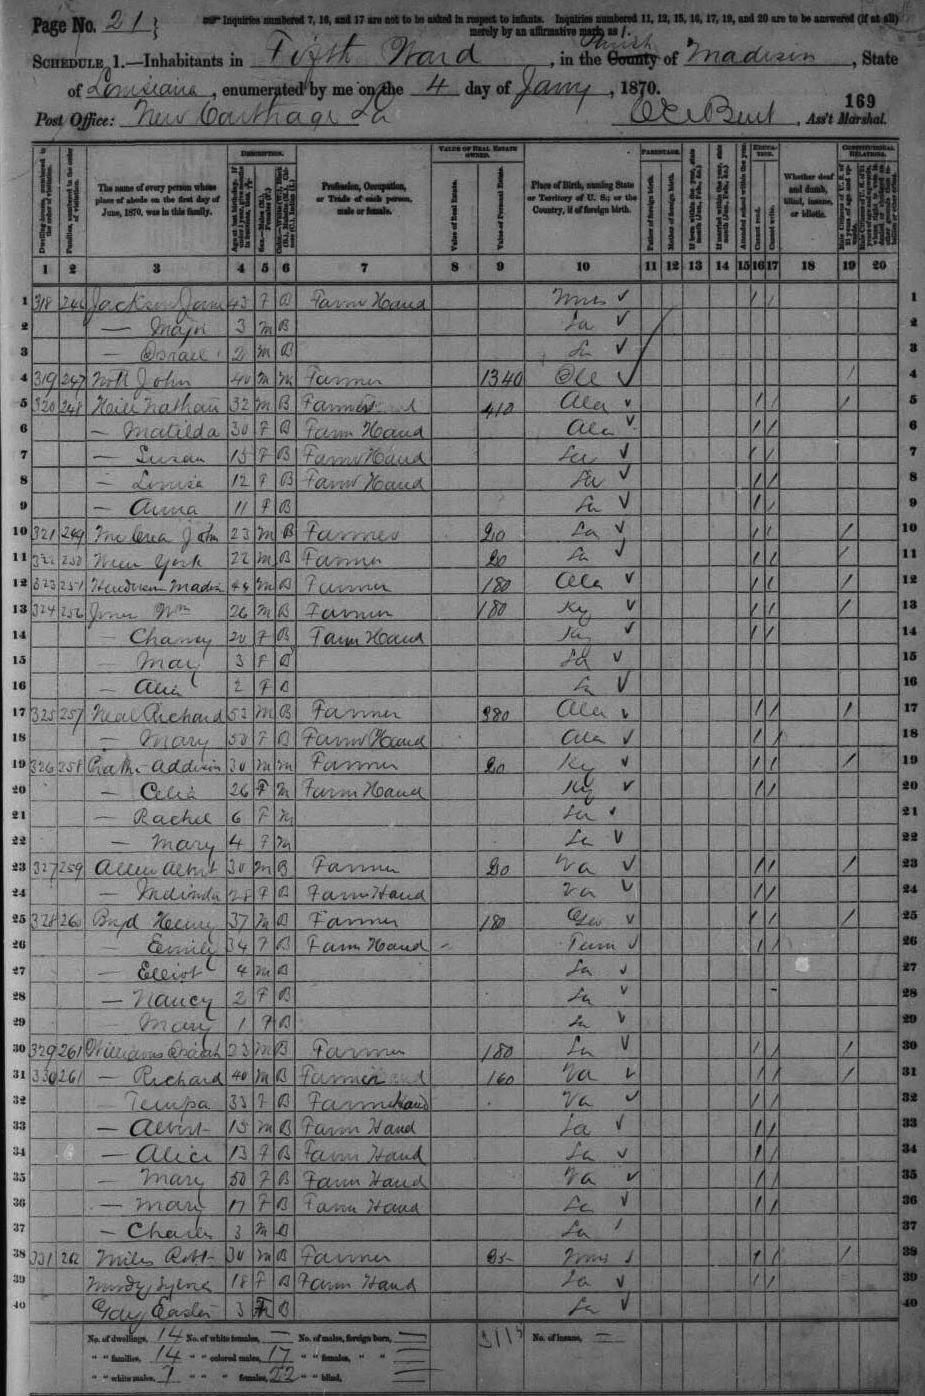 Page No. 21
Inquiries numbered 7, 16, and 17 are not to be asked in respect to infants. Inquiries numbered 11, 12, 15, 16, 17, 19, and 20 are to be answered (if at all)
merely by an affirmative mark, as /.
SCHEDULE 1.—Inhabitants in Fifth Ward, in the County Parish of Madison, State
of Louisiana, enumerated by me on the 4 day of Jany, 1870.
169
Post Office: New Carthage La
Ass't Marshal.
DESCRIPTION. VALUE OF REAL ESTATE OWNED. PARENTAGE. EDUCATION. CONSTITUTIONAL RELATIONS.
Dwelling-houses, numbered in the order of visitation.
Families, numbered in the order of visitation.
The name of every person whose place of abode on the first day of June, 1870, was in this family.
Profession, Occupation, or Trade of each person, male or female.
Value of Real Estate.
Value of Personal Estate.
Place of Birth, naming State or Territory of U. S.; or the Country, if of foreign birth.
Father of foreign birth.
Mother of foreign birth.
Attended school within the year.
Cannot read.
Cannot write.
Whether deaf and dumb, blind, insane, or idiotic.
1 2 3 4 5 6 7 8 9 10 11 12 13 14 15 16 17 18 19 20
1 318 Jackson Jane 43 F B Farm Hand Miss √ / / 1
2 — Major 3 M B La √ 2
3 — Israel 2 M B La √ 3
4 319 247 Nott John 40 M M Farmer 1340 √ / 4
5 320 248 Hill Nathan 32 M B Farmer 410 Ala √ / / / 5
6 — Matilda 30 F B Farm Hand Ala √ / / 6
7 — Susan 15 F B Farm Hand La √ / / 7
8 — Louisa 12 F B Farm Hand La √ / / 8
9 — Anna 11 F B La √ / / 9
10 321 249 John 23 M B Farmer 20 La √ / / / 10
11 322 250 York 22 M B Farmer 20 La √ / / / 11
12 323 251 Henderson Madison 44 M B Farmer 180 Ala √ / / / 12
13 324 256 Jones Wm 26 M B Farmer 180 Ky √ / / / 13
14 — Chaney 20 F B Farm Hand Ky √ / / 14
15 — Mary 3 F B La √ 15
16 — 2 F B La √ 16
17 325 257 Neal Richard 52 M B Farmer 280 Ala √ / / / 17
18 — Mary 50 F B Farm Hand Ala √ / / 18
19 326 258 Addison 30 M M Farmer 20 Ky √ / / / 19
20 — Celia 26 F M Farm Hand Ky √ / / 20
21 — Rachel 6 F M La √ 21
22 — Mary 4 F M La √ 22
23 327 259 Allen Albert 30 M B Farmer 20 Va √ / / / 23
24 — 28 F B Farm Hand Va √ / / 24
25 328 260 Boyd Henry 37 M B Farmer 180 Geo √ / / / 25
26 — Emily 34 F B Farm Hand Tenn √ / / 26
27 — Elliot 4 M B La √ 27
28 — Nancy 2 F B La √ 28
29 — Mary 1 F B La √ 29
30 329 261 Williams Isaiah 23 M B Farmer 180 La √ / / / 30
31 330 261 — Richard 40 M B Farmer 160 Va √ / / / 31
32 — Tempa 33 F B Farm Hand Va √ / / 32
33 — Albert 15 M B Farm Hand La √ / / 33
34 — Alice 13 F B Farm Hand La √ / / 34
35 — Mary 50 F B Farm Hand Va √ / / 35
36 — Mary 17 F B Farm Hand La √ / / 36
37 — Charles 3 M B La 37
38 331 262 Miles Robt 30 M B Farmer Miss √ / / / 38
39 Sylvia 18 F B Farm Hand La √ / / 39
40 Gay Easter 3 F B La √ 40
No. of dwellings, 14 No. of white females, — No. of males, foreign born, — No. of insane, —
" " families, 14 " " colored males, 17 " " females, " " —
" " white males, " " " females, 22 " " blind, —